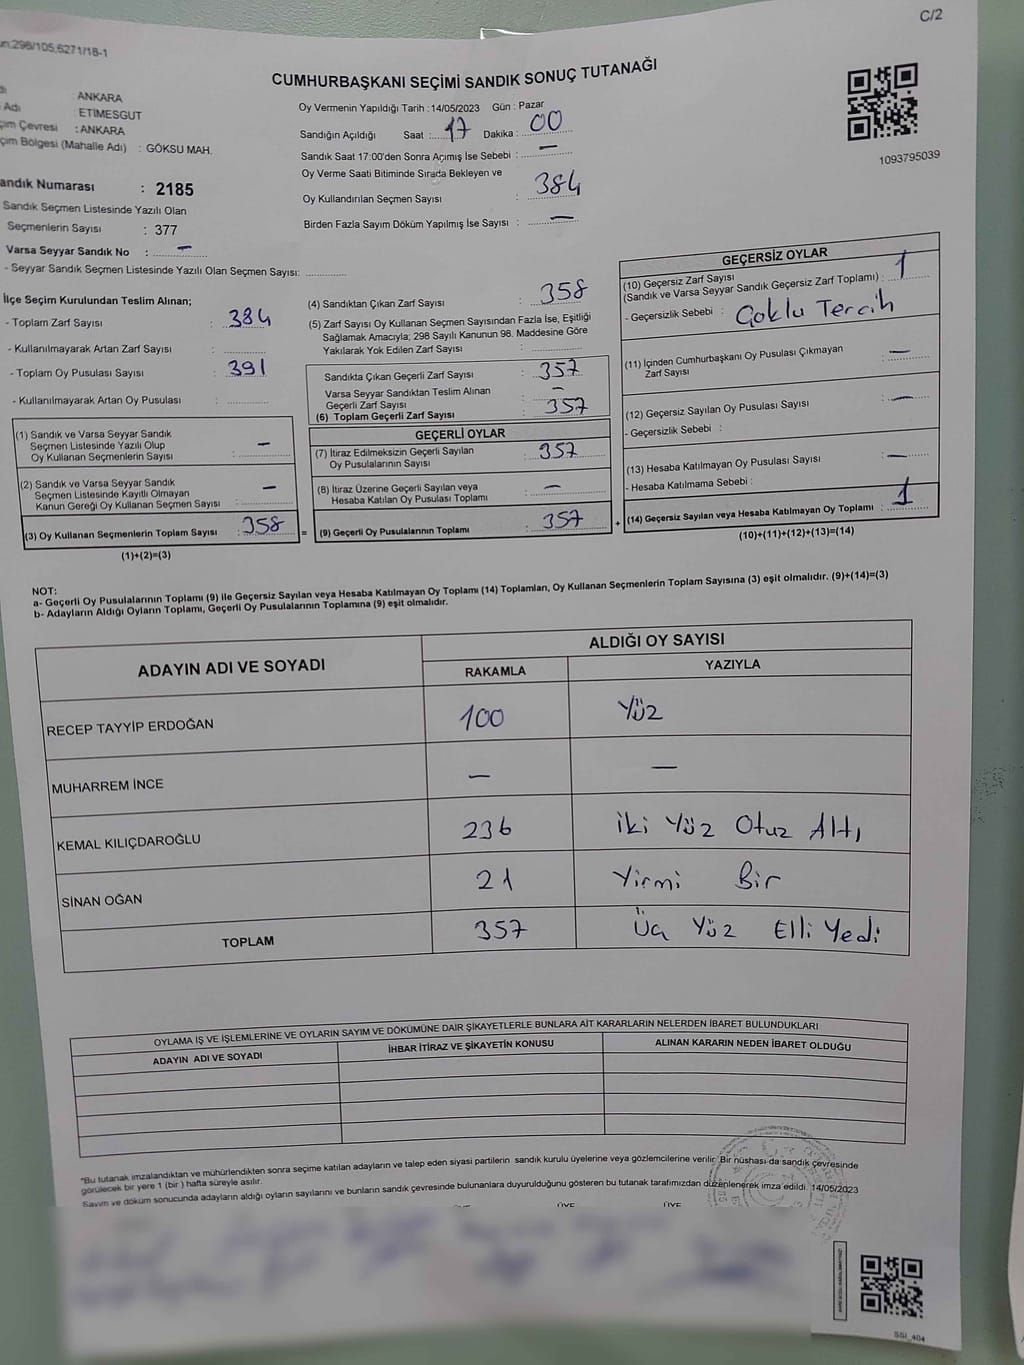 C/2
CUMHURBAŞKANI SEÇİMİ SANDIK SONUÇ TUTANAĞI
: ANKARA
Adı : ETİMESGUT
Çevresi : ANKARA
Bölgesi (Mahalle Adı) : GÖKSU MAH.
Sandık Numarası : 2185
Sandık Seçmen Listesinde Yazılı Olan
Seçmenlerin Sayısı : 377
Varsa Seyyar Sandık No : –
- Seyyar Sandık Seçmen Listesinde Yazılı Olan Seçmen Sayısı: ............
Oy Vermenin Yapıldığı Tarih :14/05/2023 Gün : Pazar
Sandığın Açıldığı Saat : 17 Dakika : 00
Sandık Saat 17:00'den Sonra Açımış İse Sebebi : –
Oy Verme Saati Bitiminde Sırada Bekleyen ve
Oy Kullandırılan Seçmen Sayısı : 384
Birden Fazla Sayım Döküm Yapılmış İse Sayısı : –
1093795039
İlçe Seçim Kurulundan Teslim Alınan;
- Toplam Zarf Sayısı : 384
- Kullanılmayarak Artan Zarf Sayısı : ............
- Toplam Oy Pusulası Sayısı : 391
- Kullanılmayarak Artan Oy Pusulası : ............
(1) Sandık ve Varsa Seyyar Sandık
Seçmen Listesinde Yazılı Olup
Oy Kullanan Seçmenlerin Sayısı : –
(2) Sandık ve Varsa Seyyar Sandık
Seçmen Listesinde Kayıtlı Olmayan
Kanun Gereği Oy Kullanan Seçmen Sayısı : –
(3) Oy Kullanan Seçmenlerin Toplam Sayısı : 358
(1)+(2)=(3)
(4) Sandıktan Çıkan Zarf Sayısı : 358
(5) Zarf Sayısı Oy Kullanan Seçmen Sayısından Fazla İse, Eşitliği
Sağlamak Amacıyla; 298 Sayılı Kanunun 98. Maddesine Göre
Yakılarak Yok Edilen Zarf Sayısı : ............
Sandıkta Çıkan Geçerli Zarf Sayısı : 357
Varsa Seyyar Sandıktan Teslim Alınan
Geçerli Zarf Sayısı : –
(6) Toplam Geçerli Zarf Sayısı : 357
GEÇERLİ OYLAR
(7) İtiraz Edilmeksizin Geçerli Sayılan
Oy Pusulalarının Sayısı : 357
(8) İtiraz Üzerine Geçerli Sayılan veya
Hesaba Katılan Oy Pusulası Toplamı : –
= (9) Geçerli Oy Pusulalarının Toplamı : 357
GEÇERSİZ OYLAR
(10) Geçersiz Zarf Sayısı
(Sandık ve Varsa Seyyar Sandık Geçersiz Zarf Toplamı) : 1
- Geçersizlik Sebebi : Çoklu Tercih
(11) İçinden Cumhurbaşkanı Oy Pusulası Çıkmayan
Zarf Sayısı : –
(12) Geçersiz Sayılan Oy Pusulası Sayısı : –
- Geçersizlik Sebebi :
(13) Hesaba Katılmayan Oy Pusulası Sayısı : –
- Hesaba Katılmama Sebebi :
+ (14) Geçersiz Sayılan veya Hesaba Katılmayan Oy Toplamı : 1
(10)+(11)+(12)+(13)=(14)
NOT:
a- Geçerli Oy Pusulalarının Toplamı (9) ile Geçersiz Sayılan veya Hesaba Katılmayan Oy Toplamı (14) Toplamları, Oy Kullanan Seçmenlerin Toplam Sayısına (3) eşit olmalıdır. (9)+(14)=(3)
b- Adayların Aldığı Oyların Toplamı, Geçerli Oy Pusulalarının Toplamına (9) eşit olmalıdır.
ADAYIN ADI VE SOYADI ALDIĞI OY SAYISI
RAKAMLA YAZIYLA
RECEP TAYYİP ERDOĞAN 100 Yüz
MUHARREM İNCE – –
KEMAL KILIÇDAROĞLU 236 İki Yüz Otuz Altı
SİNAN OĞAN 21 Yirmi Bir
TOPLAM 357 Üç Yüz Elli Yedi
OYLAMA İŞ VE İŞLEMLERİNE VE OYLARIN SAYIM VE DÖKÜMÜNE DAİR ŞİKAYETLERLE BUNLARA AİT KARARLARIN NELERDEN İBARET BULUNDUKLARI
ADAYIN ADI VE SOYADI İHBAR İTİRAZ VE ŞİKAYETİN KONUSU ALINAN KARARIN NEDEN İBARET OLDUĞU
*Bu tutanak imzalandıktan ve mühürlendikten sonra seçime katılan adayların ve talep eden siyasi partilerin sandık kurulu üyelerine veya gözlemcilerine verilir. Bir nüshası da sandık çevresinde
görülecek bir yere 1 (bir) hafta süreyle asılır.
Sayım ve döküm sonucunda adayların aldığı oyların sayılarını ve bunların sandık çevresinde bulunanlara duyurulduğunu gösteren bu tutanak tarafımızdan düzenlenerek imza edildi. 14/05/2023
ÜYE ÜYE
SSI_404